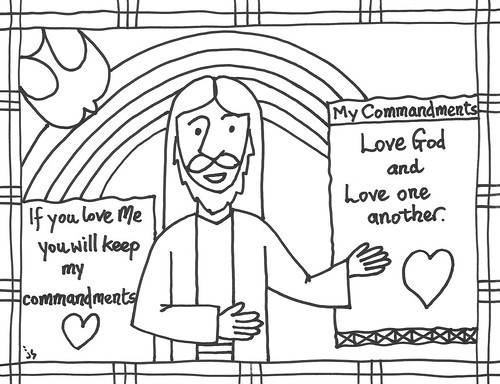 If you love Me
you will keep
my
commandments
My Commandments
Love God
and
Love one
another.